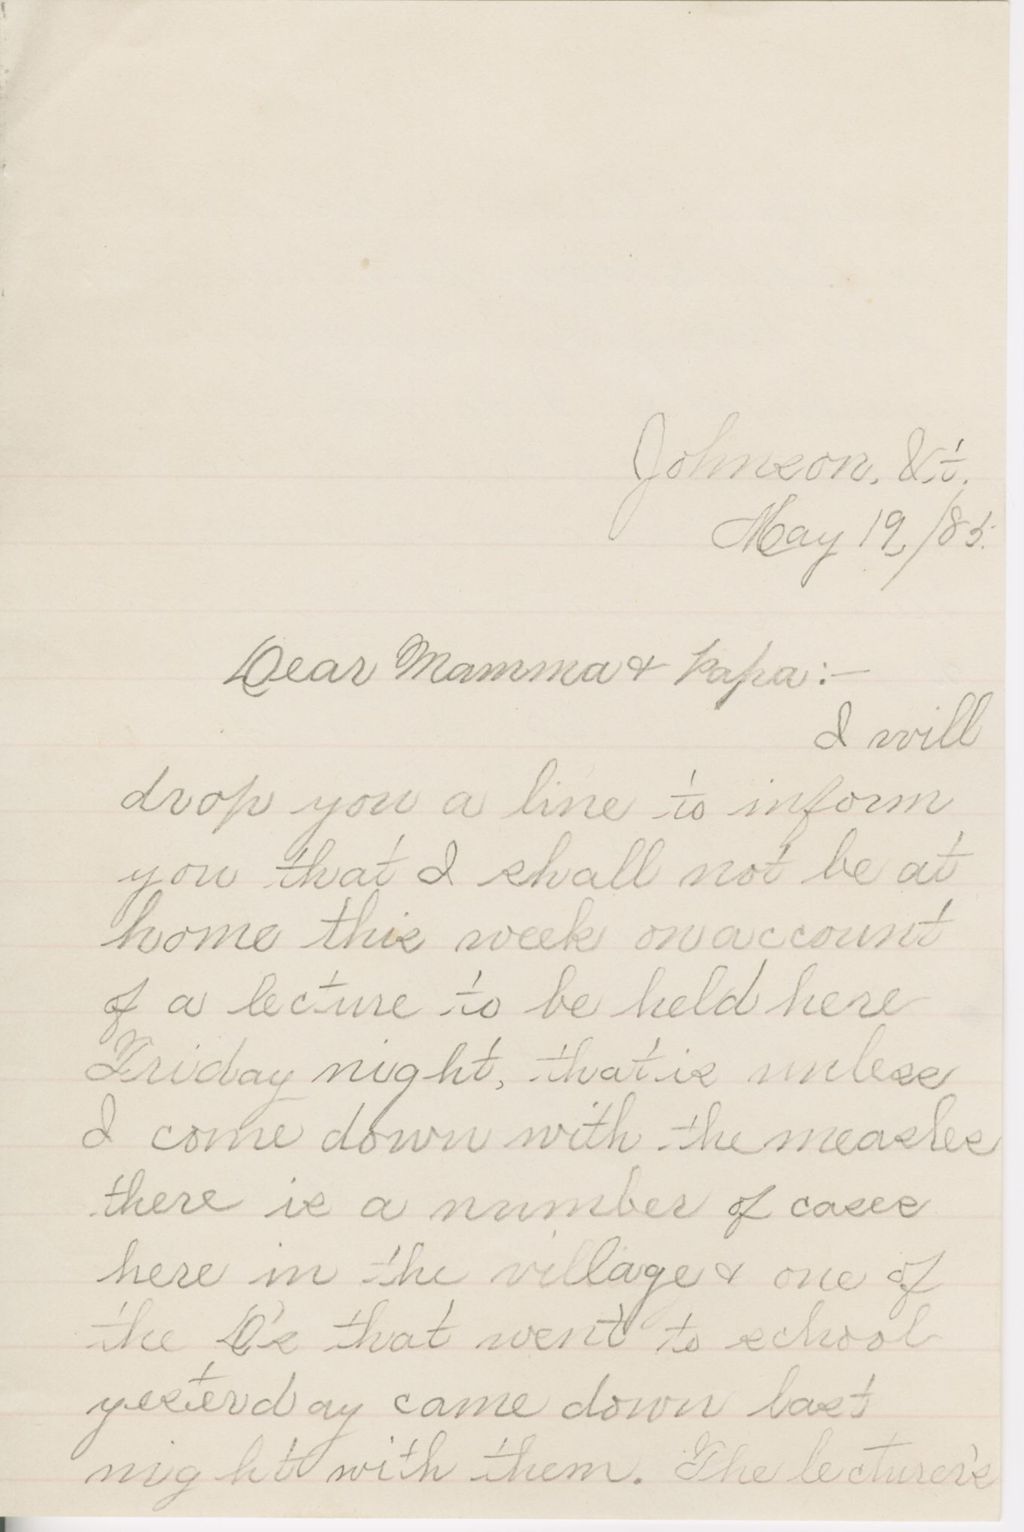 Johnson, Vt.
May 19, /85.
Dear Mamma & Papa:—
I will
drop you a line to inform
you that I shall not be at
home this week on account
of a lecture to be held here
Friday night, that is unless
I come down with the measles
there is a number of cases
here in the village & one of
the D's that went to school
yesterday came down last
night with them. The lecturer's